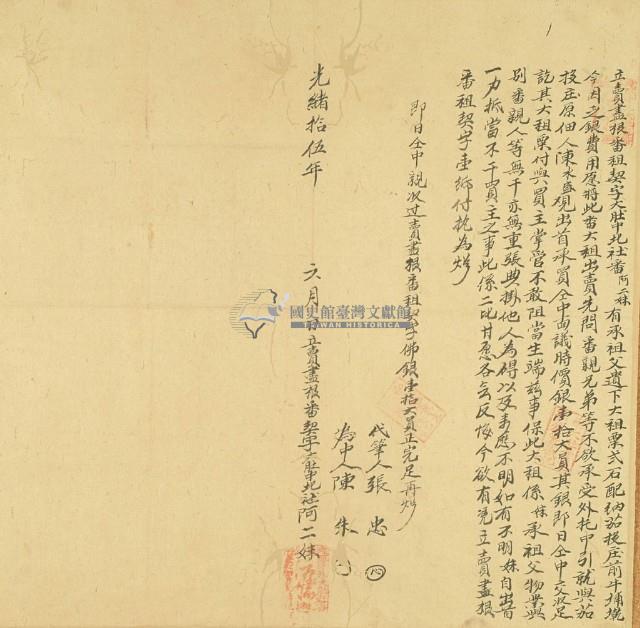 立賣盡根番租契字大肚中北社番阿二妹有承祖父遺下大租粟弍石配納茄投庄前牛埔墘
今因乏銀費用愿將此番大租出賣先問番親兄弟等不欲承受外托中引就與茄
投庄原佃人陳水盛觀出首承買仝中面議時價銀壹拾大員其銀即日仝中交收足
訖其大租粟付與買主掌管不敢阻當生端茲事保此大租係妹承祖父物業與
別番親人等無干亦無重張典掛他人為碍以及來歷不明如有不明妹自出首
一力抵當不干買主之事此係二比甘愿各無反悔今欲有凭立賣盡根
番租契字壹紙付执為炤
即日仝中親收过賣盡根番租契字佛銀壹拾大員正完足再炤
代筆人張忠
為中人陳朱
光緒拾伍年 六月 日立賣盡根番契字大肚中北社阿二妹
國史館臺灣文獻館
TAIWAN HISTORICA